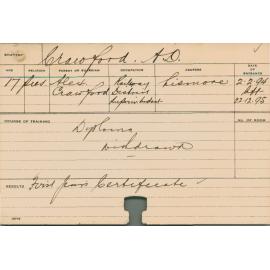 STUDENT Crawford. A.D.
AGE RELIGION PARENT OR GUARDIAN OCCUPATION ADDRESS DATE OF ENTRANCE
17 Pres Alex. Railway Lismore 2.2.94
Crawford District Left
Superintendent 22.12.95
COURSE OF TRAINING No. OF ROOM
Diploma
Withdrawn
RESULTS First Year Certificate